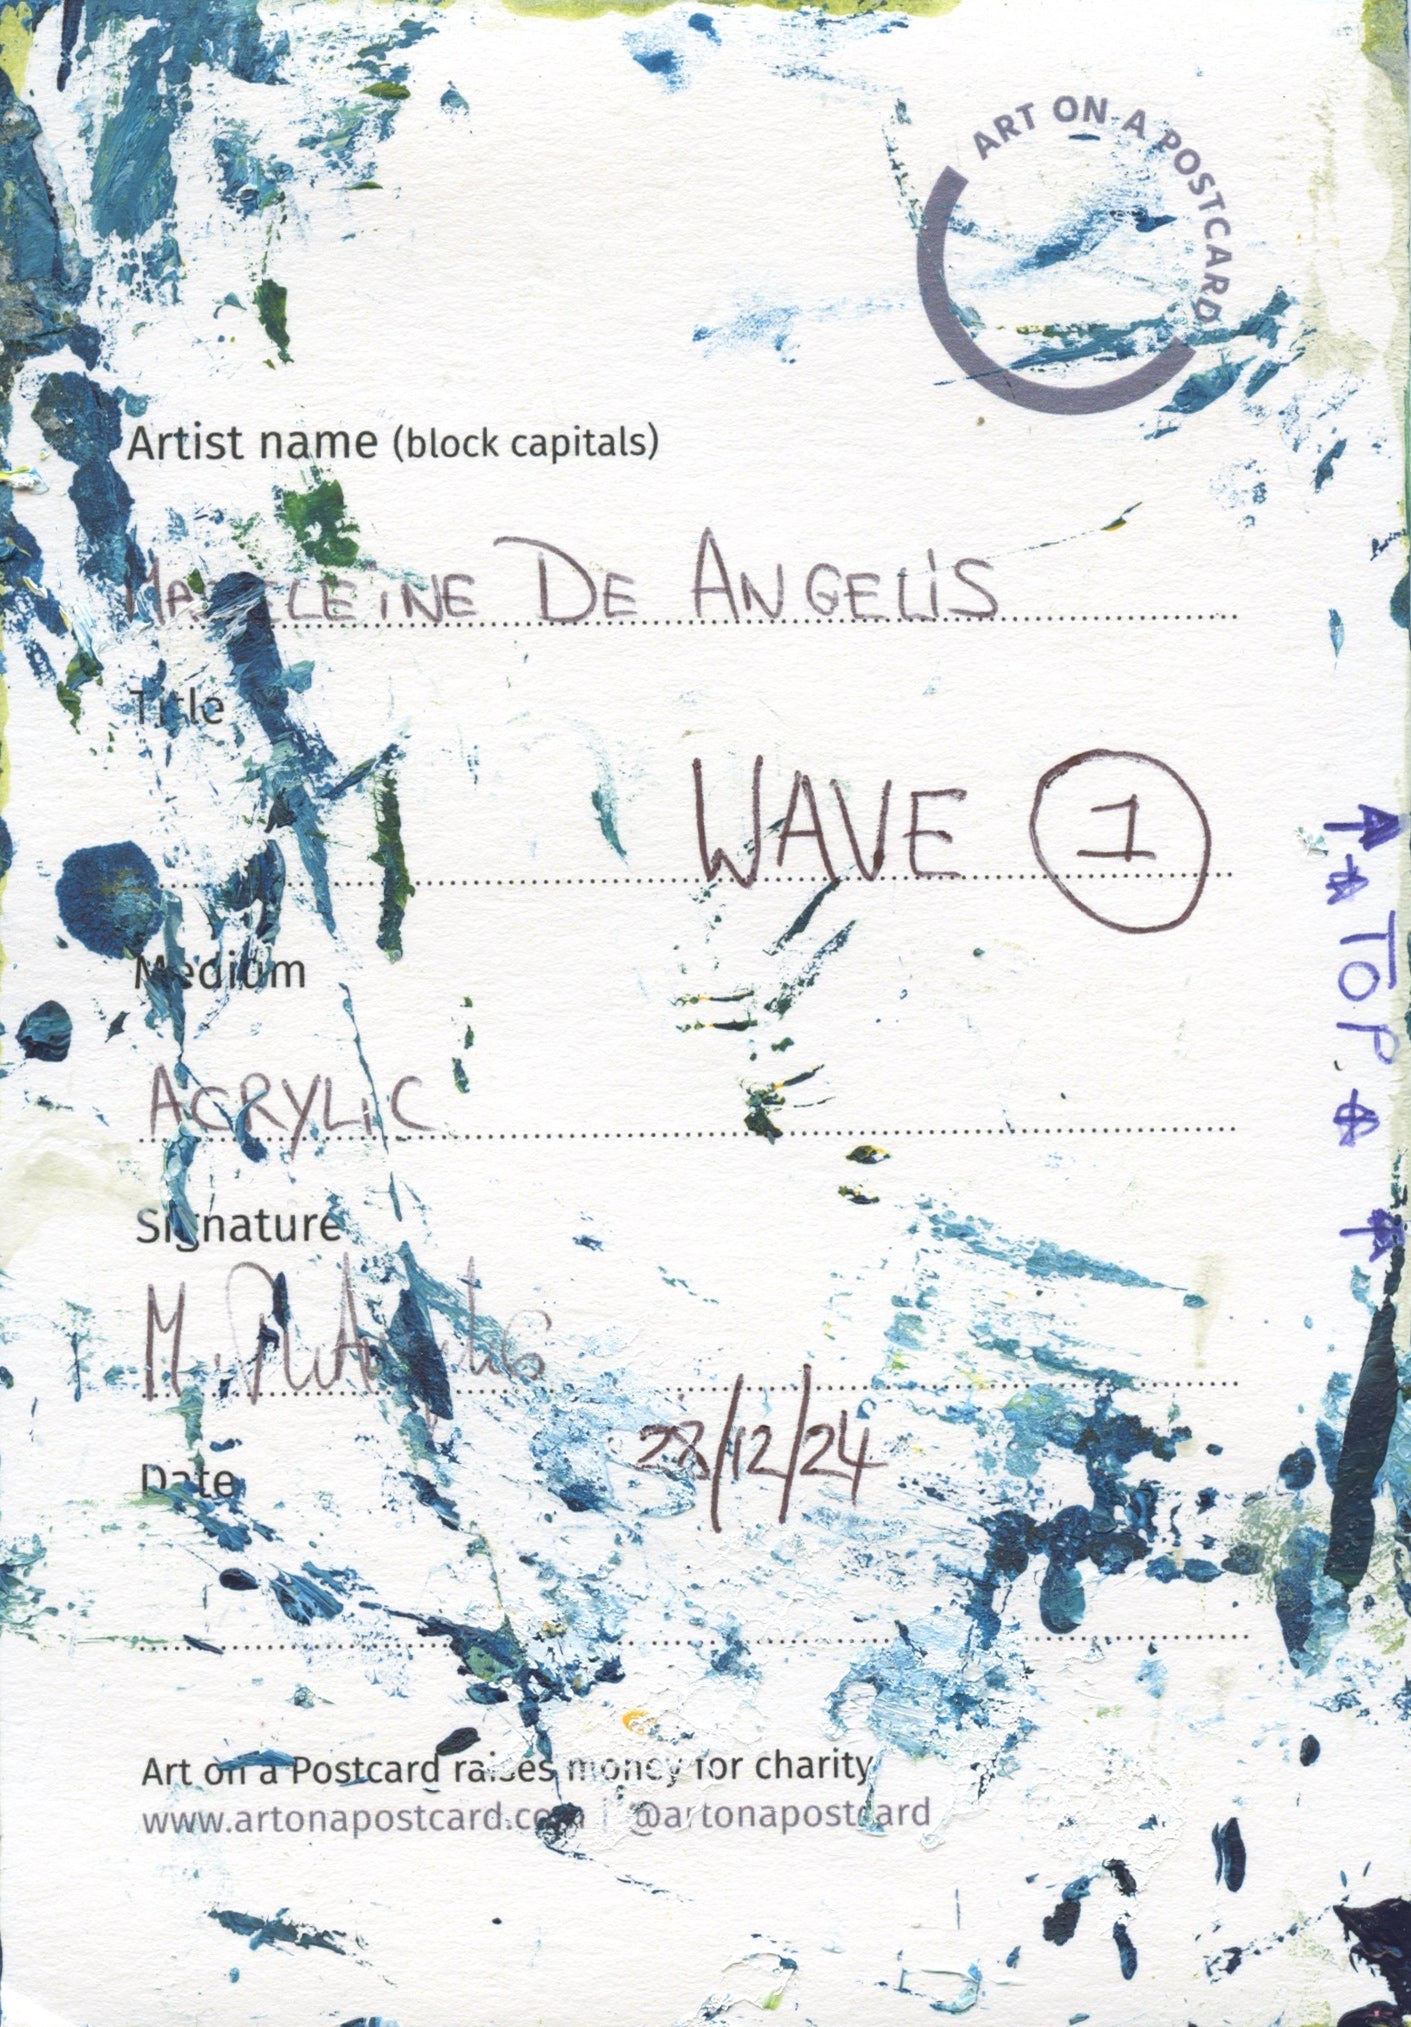 ART ON A POSTCARD
Artist name (block capitals)
MADELEINE DE ANGELIS
Title
WAVE 1
TOP
Medium
ACRYLIC
Signature
M. De Angelis
28/12/24
Date
Art on a Postcard raises money for charity
www.artonapostcard.com | @artonapostcard